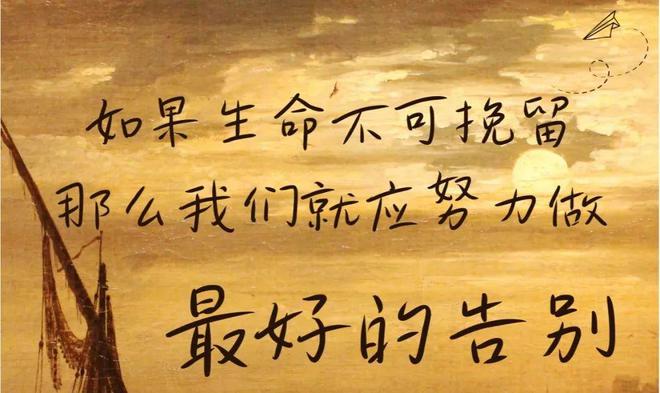 如果生命不可挽留
那么我们就应努力做
最好的告别